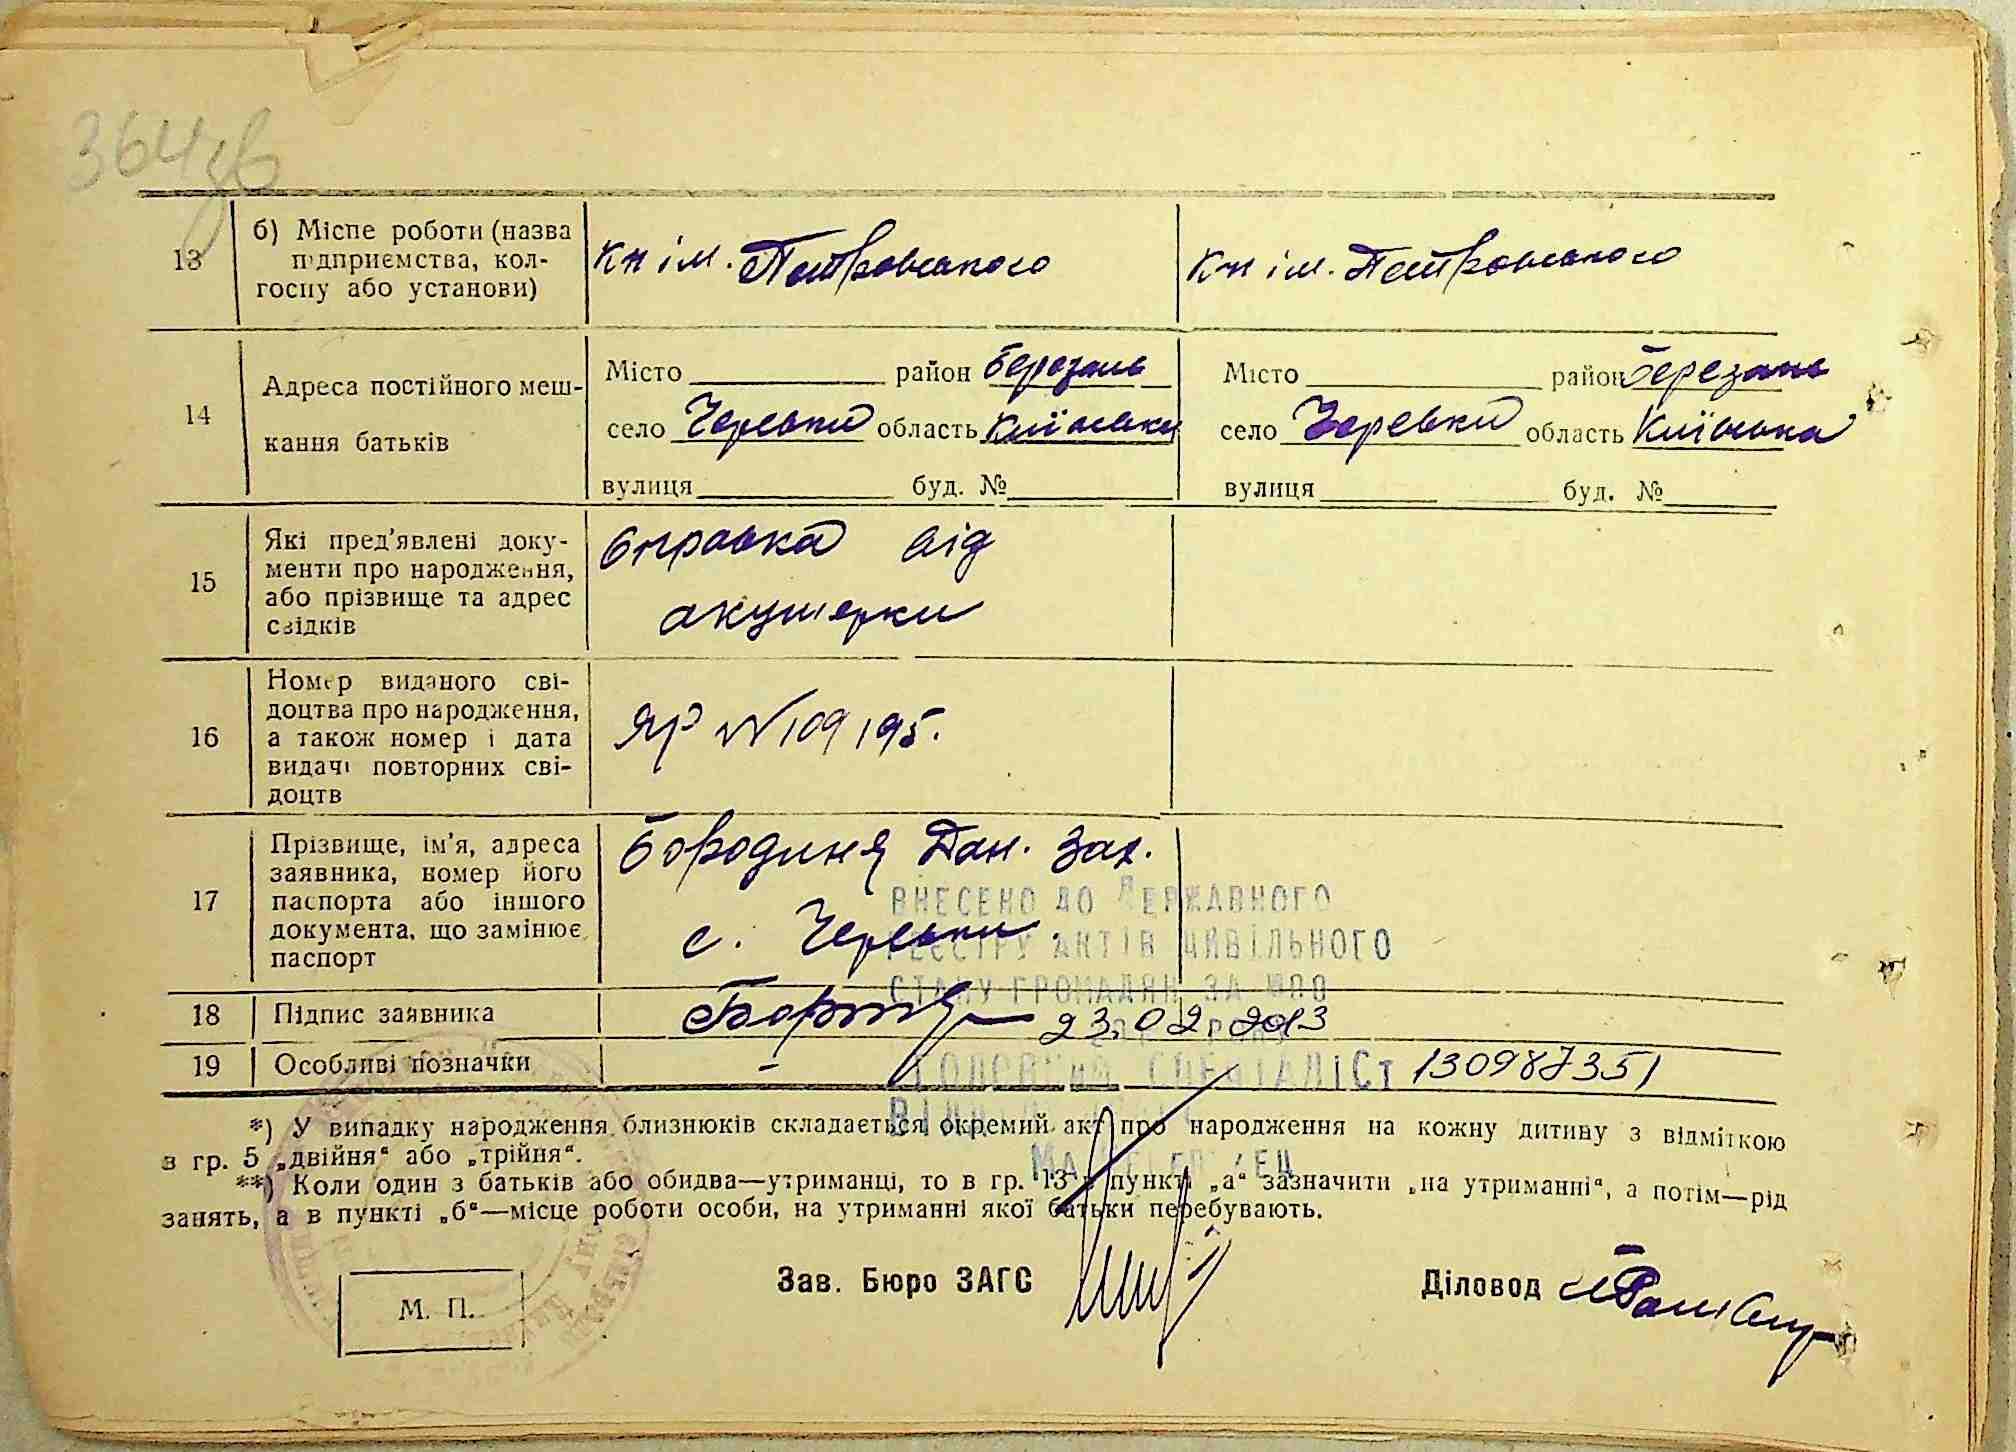 364зв
13
б) Місце роботи (назва
підприємства, кол-
госпу або установи)
кп ім. Петровського
кп ім. Петровського
14
Адреса постійного меш-
кання батьків
Місто район Березань
село Черевки область Київська
вулиця буд. №
Місто район Березань
село Черевки область Київська
вулиця буд. №
15
Які пред'явлені доку-
менти про народження,
або прізвище та адрес
свідків
Справка від
акушерки
16
Номер виданого сві-
доцтва про народження,
а також номер і дата
видачі повторних сві-
доцтв
ЯР №109195.
17
Прізвище, ім'я, адреса
заявника, номер його
паспорта або іншого
документа, що замінює
паспорт
Бородиня Дан. Зах.
с. Черевки.
ВНЕСЕНО ДО ДЕРЖАВНОГО
РЕЄСТРУ АКТІВ ЦИВІЛЬНОГО
СТАНУ ГРОМАДЯН ЗА
18
Підпис заявника
23.02.2013
19
Особливі позначки
-
ГОЛОВНИЙ СПЕЦІАЛІСТ 130987351
*) У випадку народження близнюків складається окремий акт про народження на кожну дитину з відміткою
в гр. 5 „двійня“ або „трійня“.
**) Коли один з батьків або обидва—утриманці, то в гр. 13 в пункті „а“ зазначити „на утриманні“, а потім—рід
занять, а в пункті „б“—місце роботи особи, на утриманні якої батьки перебувають.
Зав. Бюро ЗАГС
Діловод
М. П.